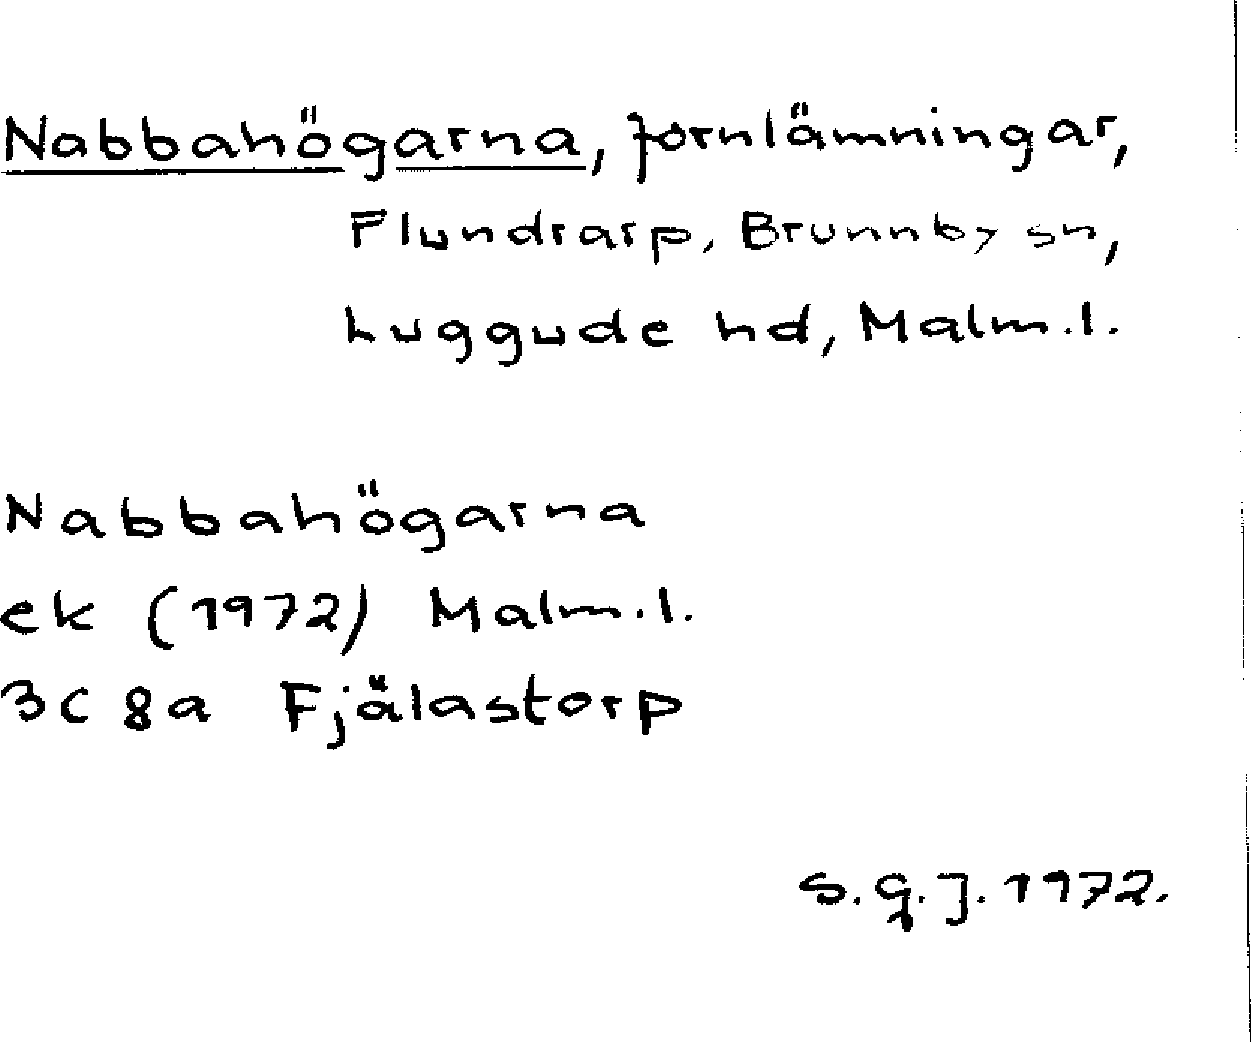 Nabbahögarna, fornlämningar,
Flundrarp, Brunnby sn,
Luggude hd, Malm.l.
Nabbahögarna
ek (1972) Malm.l.
3C 8a Fjälastorp
S.G.J. 1972.